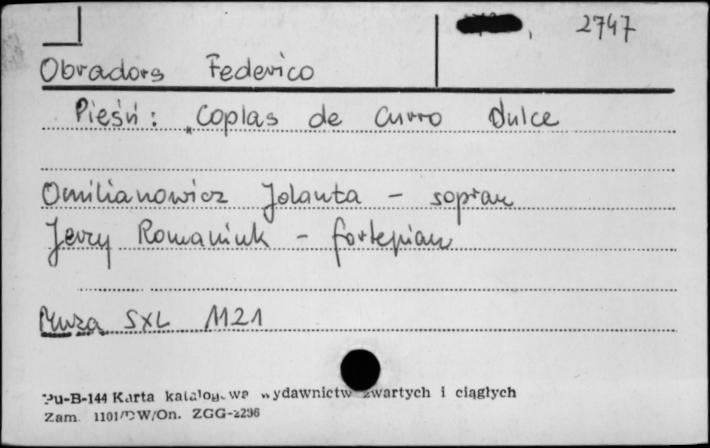 2747
Obradors Federico
Pieśń: Coplas de Curro Dulce
Omilianowicz Jolanta - sopran
Jerzy Romaniuk - fortepian
Muza SXL 1121
Pu-B-144 Karta katalogowa wydawnictw zwartych i ciągłych
Zam. 1101/DW/On. ZGG-2296